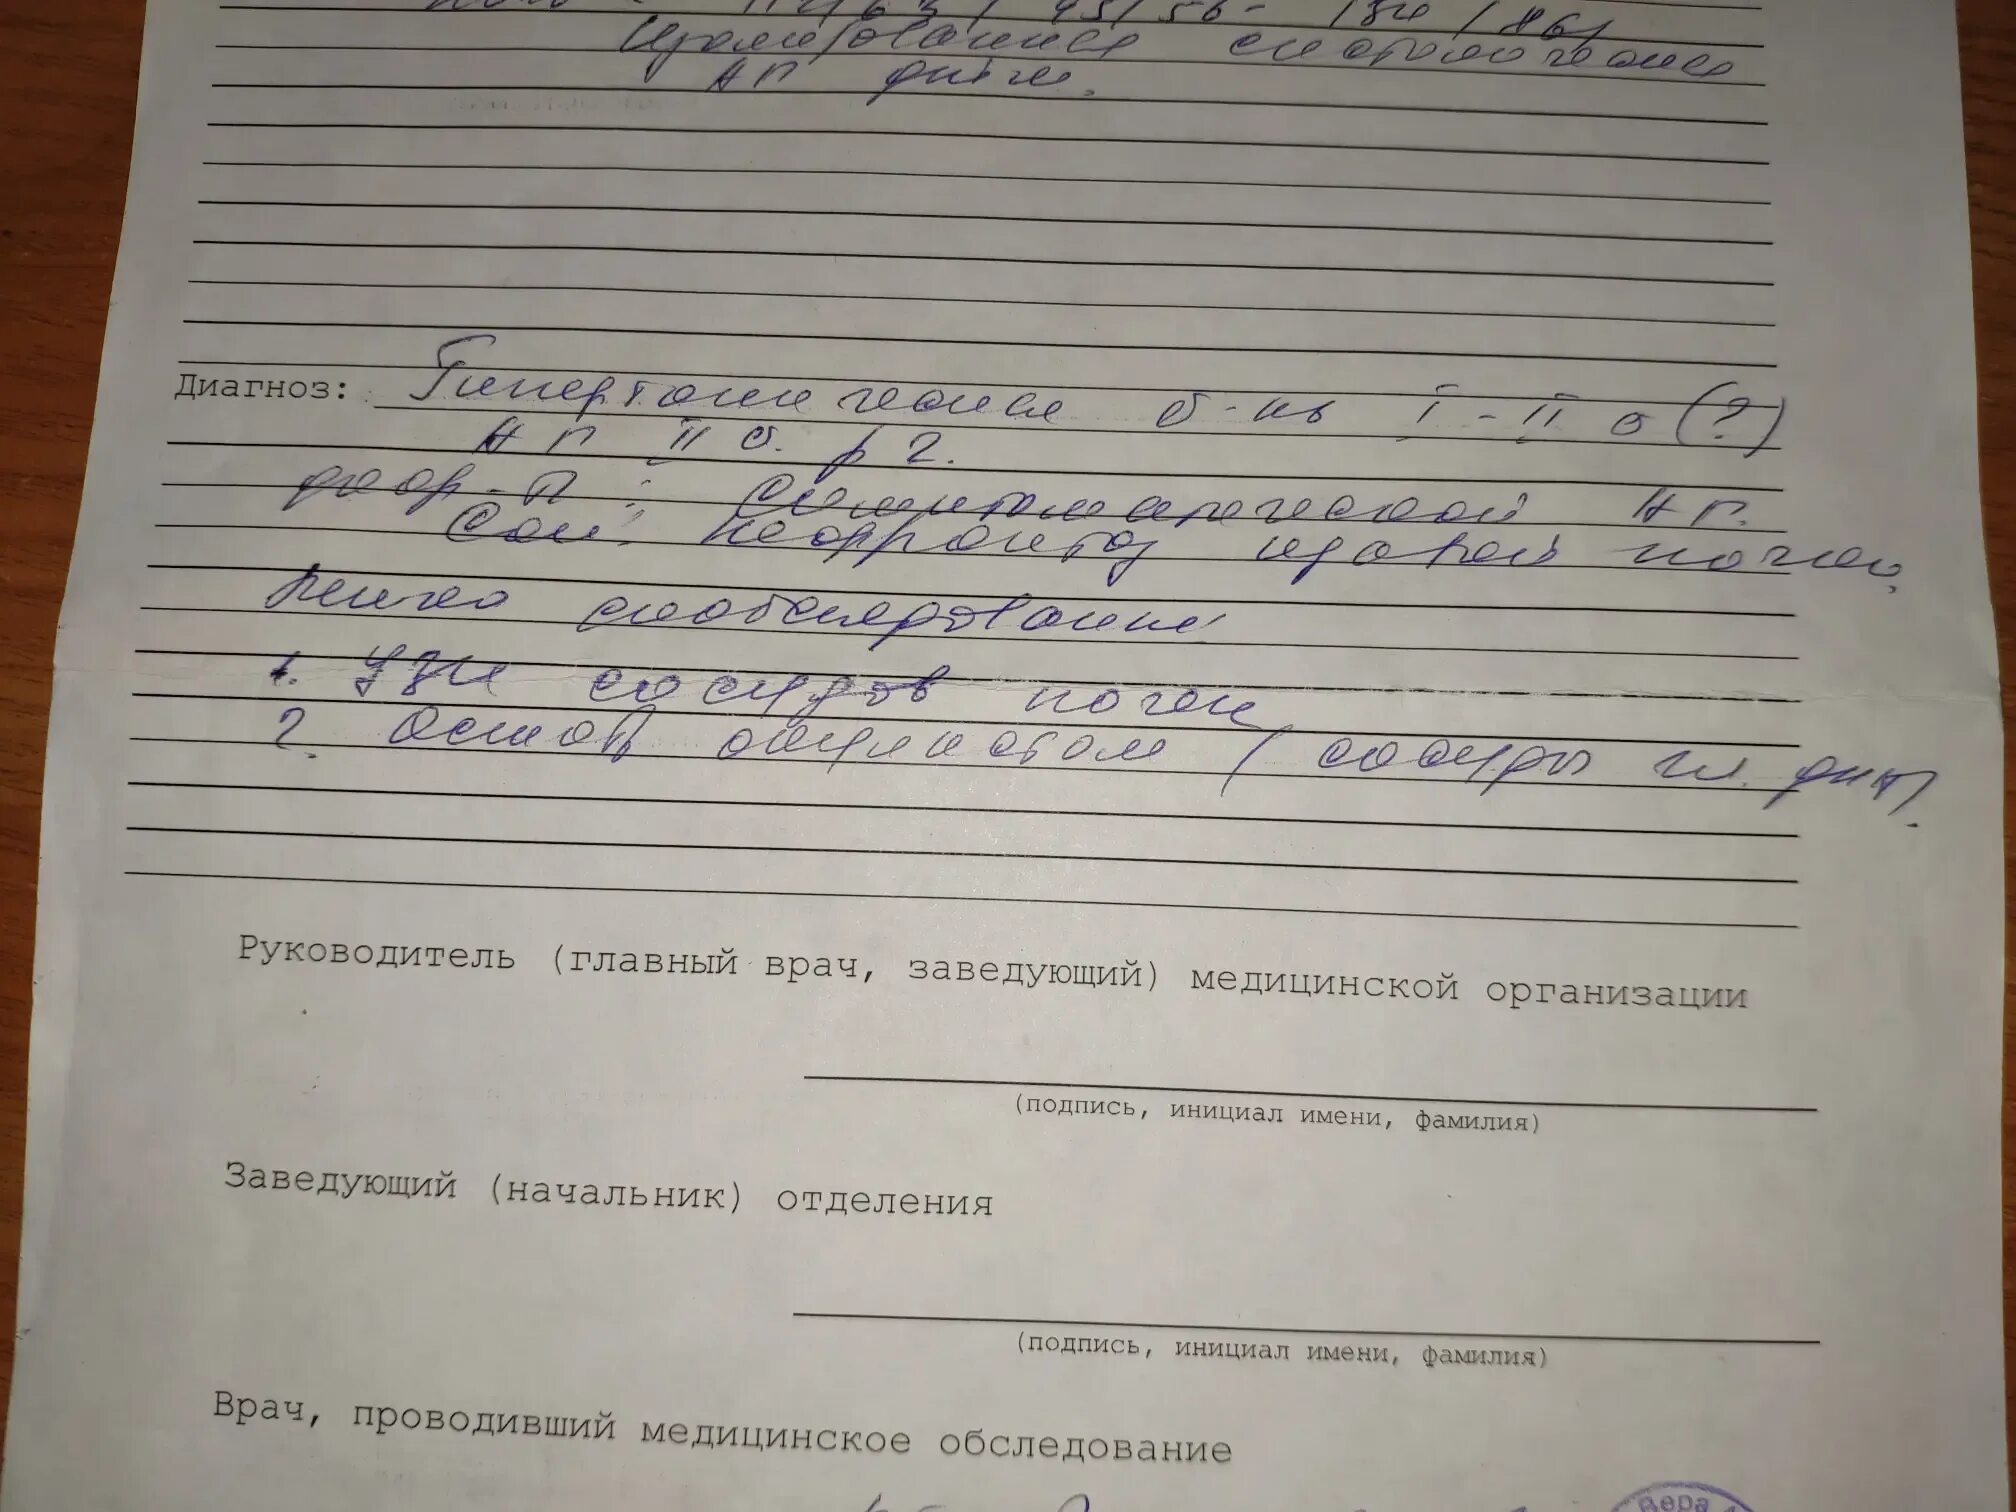 Изолированная систолическая
АГ днём.
Диагноз: Гипертоническая б-нь I-II ст (?)
АГ II ст. р 2.
симптоматической АГ.
Соп: Нефроптоз правой почки
дообследование
1. УЗИ сосудов почек
2. Осмотр окулистом (сосуды гл. дна).
Руководитель (главный врач, заведующий) медицинской организации
(подпись, инициал имени, фамилия)
Заведующий (начальник) отделения
(подпись, инициал имени, фамилия)
Врач, проводивший медицинское обследование
Вера